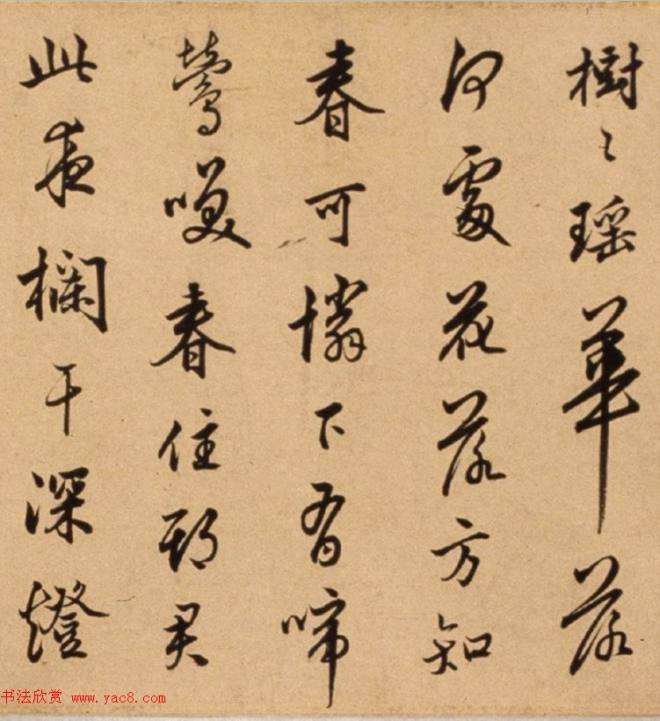 樹〻瑶華落
何處花落方知
春可憐下有啼
鶯喚春住君
此夜欄干深燈
书法欣赏 www.yac8.com